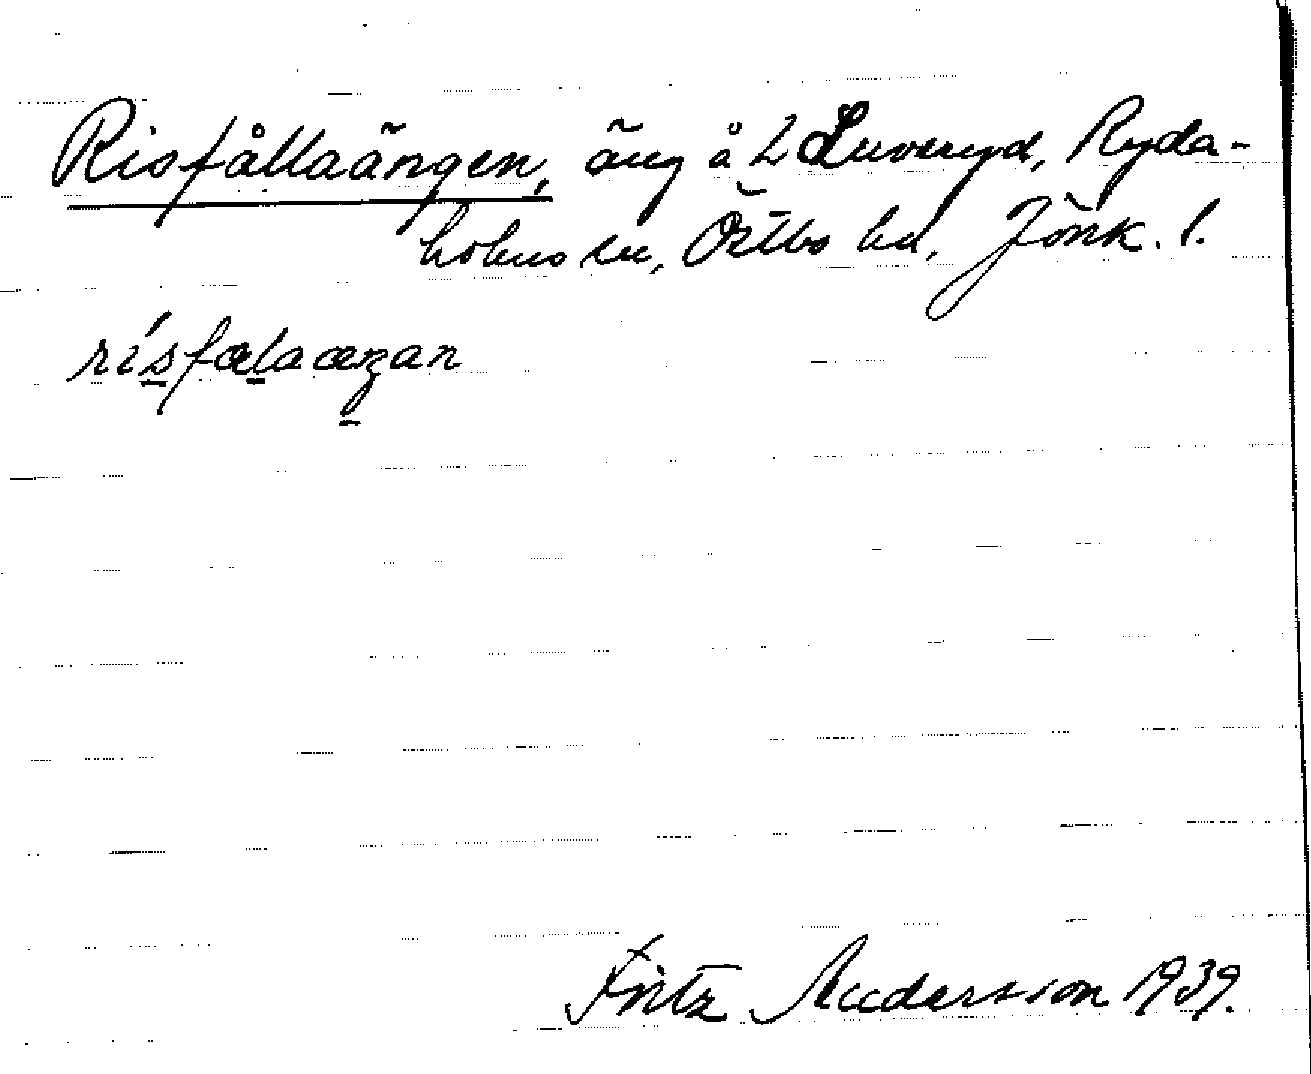 Risfållaängen, äng å L Luveryd, Ryda-
holms sn, Östbo hd, Jönk. l.
rísfælaæŋan
Fritz Andersson 1939.